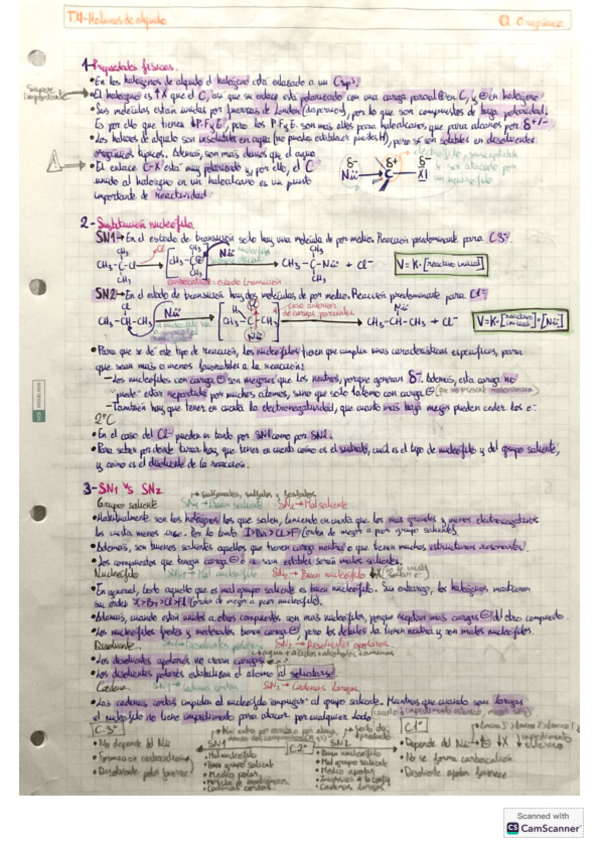 T.4-Haluros de alquilo
Q. Orgánica
1-Propiedades físicas.
• En los halógenos de alquilo el halógeno está enlazado a un Csp³.
• El halógeno es ↑X que el C, así que su enlace está polarizado con una carga parcial ⊕ en C, y ⊖ en halógeno
• Sus moléculas están unidas por fuerzas de London (dispersión), por lo que son compuestos de baja polaridad.
Es por ello que tienen ↓P.F y E, pero los P.F y E. son mas altos para haloalcanos que para alcanos por δ+/-
• Los haluros de alquilo son insolubles en agua (no pueden establecer puentes H), pero sí son solubles en disolventes
orgánicos típicos. Además, son mas densos que el agua
• El enlace C-X está muy polarizado y por ello, el C
unido al halógeno en un haloalcano es un punto
importante de reactividad
2-Sustitución nucleófila.
SN1→En el estado de transición solo hay una molécula de por medio. Reacción predominante para C3º.
CH₃-C-Cl
CH₃-C-Nü: + Cl⁻
V=K·[reactivo inicial]
SN2→En el estado de transición hay dos moléculas de por medio. Reacción predominante para C1º
CH₃-CH-CH₃
CH₃-CH-CH₃ + Cl⁻
V=K·[reactivo inicial]·[Nü]
• Para que se dé este tipo de reacción, los nucleófilos tienen que cumplir unas características específicas, para
que sean más o menos favorables a la reacción:
—Los nucleófilos con carga ⊖ son mejores que los neutros, porque generan δ⁻. Además, esta carga no
puede estar repartida por muchos átomos, sino que solo 1 átomo con carga ⊖
—También hay que tener en cuenta la electronegatividad, que cuanto mas baja mejor pueden ceder los e⁻
2ºC
• En el caso del C2º pueden ir tanto por SN1 como por SN2.
• Para saber por dónde tirará hay que tener en cuenta como es el sustrato, cuál es el tipo de nucleófilo y del grupo saliente,
y cómo es el disolvente de la reacción.
3-SN1 VS SN2
Grupo saliente SN1→Buen saliente SN2→Mal saliente
• Habitualmente son los halógenos los que salen, teniendo en cuenta que los mas grandes y menos electronegativos
les cuesta menos irse. Por lo tanto I>Br>Cl>F (orden de mejor a peor grupo saliente).
• Además, son buenos salientes aquellos que tienen carga neutra o que tienen muchas estructuras resonantes.
• Los compuestos que tengan carga ⊖ o sean estables serán malos salientes.
Nucleófilo SN1→Mal nucleófilo SN2→Buen nucleófilo
• En general, todo aquello que es mal grupo saliente es buen nucleófilo. Sin embargo, los halógenos mantienen
su orden
• Además, cuando están unidos a otros compuestos son mas nucleófilos, porque aceptan mas cargas ⊖ del otro compuesto
• Los nucleófilos fuertes y moderados tienen carga ⊖, pero los débiles la tienen neutra y son malos nucleófilos.
Disolvente SN1→Disolventes polares SN2→Disolventes apolares
• Los disolventes apolares no crean cargas
• Los disolventes polares estabilizan el átomo al solvatarse
Cadena SN1→Cadenas cortas SN2→Cadenas largas
• Las cadenas cortas impiden al nucleófilo "empujar" al grupo saliente. Mientras que cuando son largas
el nucleófilo no tiene impedimento para atacar por cualquier lado
C-3º
• No depende del Nü:
• Forma un carbocatión
• Disolvente polar favorece
SN1
• Mal nucleófilo
• Buen grupo saliente
• Medio polar
• Cadenas cortas
C2º
SN2
• Buen nucleófilo
• Mal grupo saliente
• Medio apolar
• Cadenas largas
C1º
• Depende del Nü
• No se forma carbocatión
• Disolvente apolar favorece
Scanned with
CS CamScanner